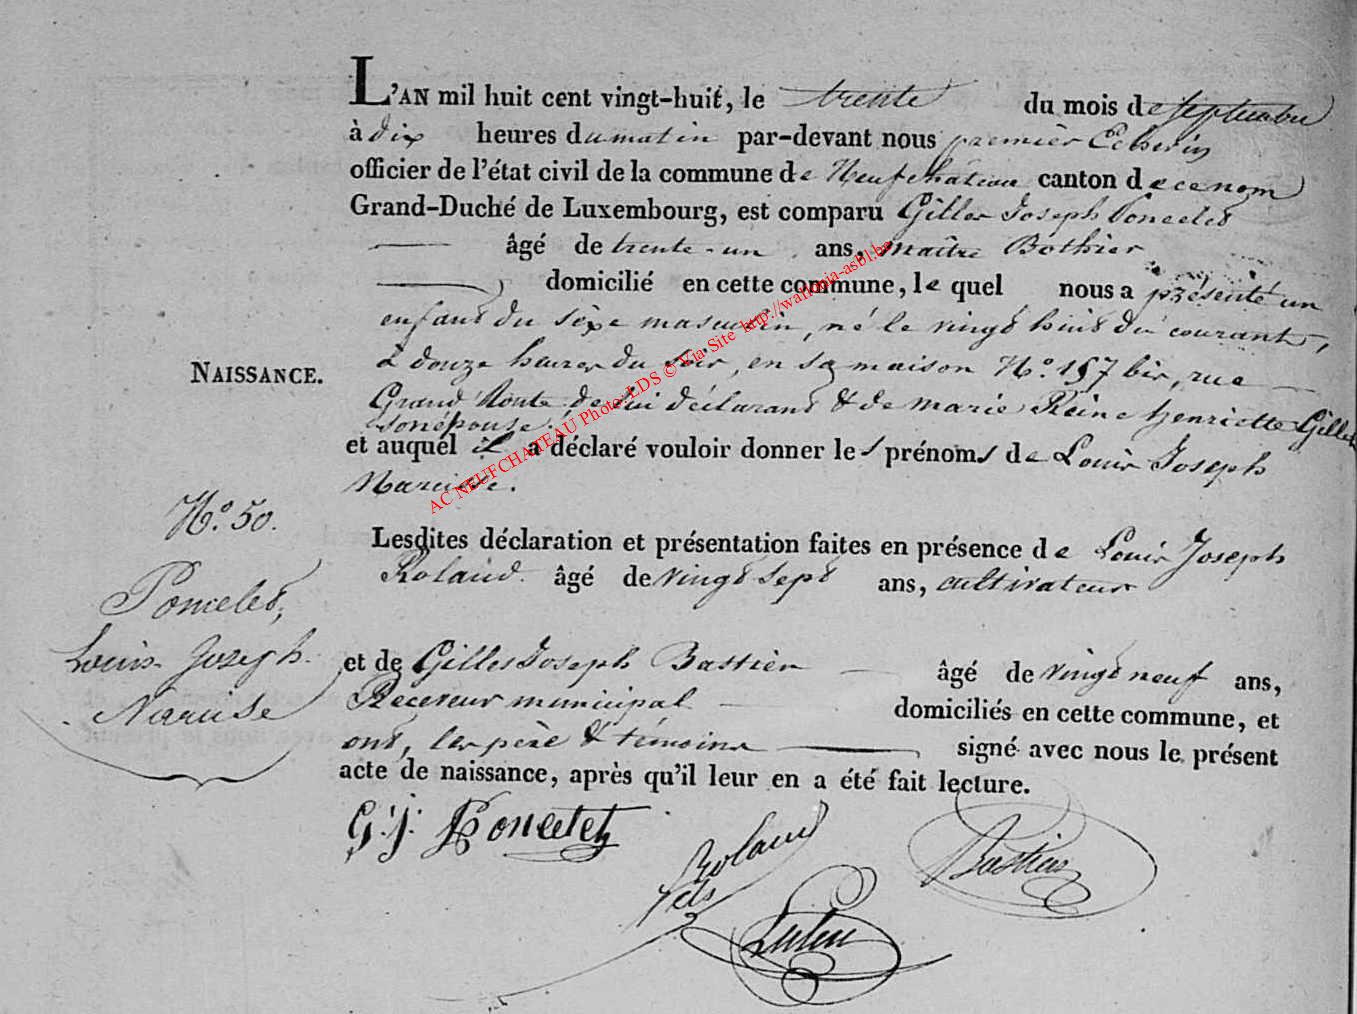 L'AN mil huit cent vingt-huit, le trente du mois de septembre
à dix heures du matin par-devant nous premier Echevin
officier de l'état civil de la commune de Neufchâteau canton de ce nom
Grand-Duché de Luxembourg, est comparu Gilles Joseph Poncelet
âgé de trente-un ans, maître Bottier
domicilié en cette commune, le quel nous a présenté un
enfant du sèxe masculin, né le vingt huit du courant,
à douze heures du soir, en sa maison N.º 157 bis, rue
NAISSANCE.
Grand'Route, de lui déclarant & de marie Reine henriette Gillet
son épouse.
et auquél il a déclaré vouloir donner les prénoms de Louis Joseph
Narcisse.
N.º 50.
Poncelet,
Louis Joseph
Narcisse
Lesdites déclaration et présentation faites en présence de Louis Joseph
Roland âgé de vingt sept ans, cultivateur
et de Gilles Joseph Bastien âgé de vingt neuf ans,
Receveur municipal domiciliés en cette commune, et
ont, les père & témoins signé avec nous le présent
acte de naissance, après qu'il leur en a été fait lecture.
G. J. Poncelet
Roland
fils
Bastien
AC NEUFCHATEAU Photo LDS © Via Site http://wallonia-asbl.be